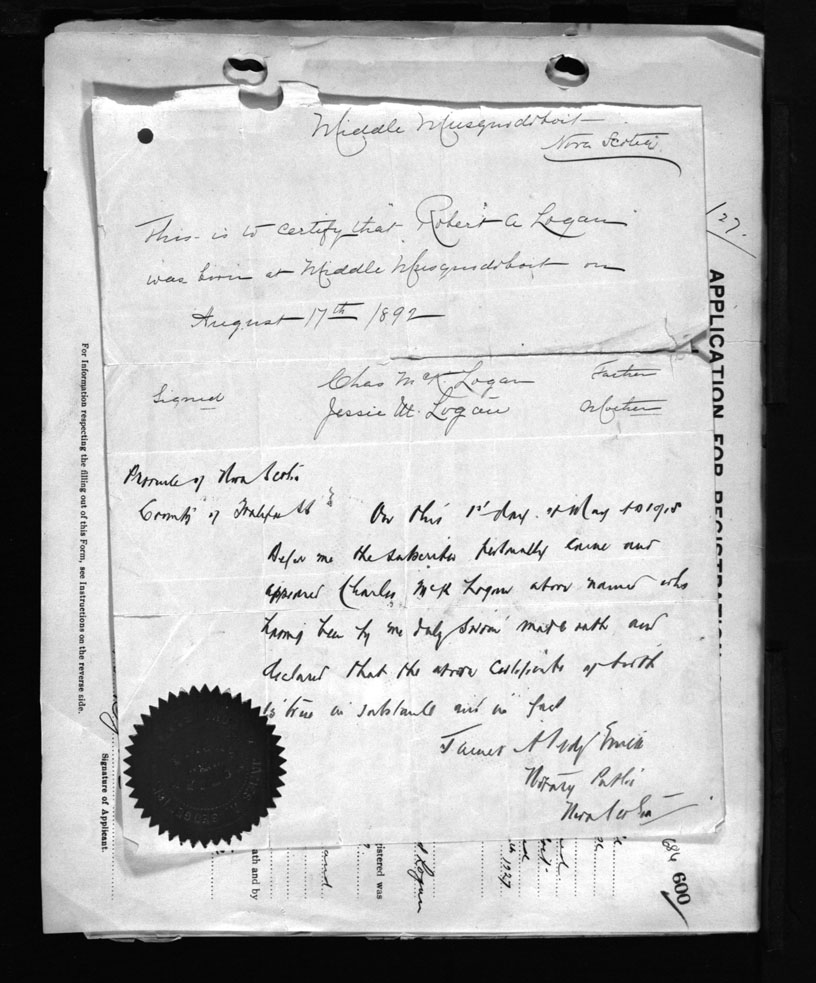 Middle Musquodoboit
Nova Scotia
This is to certify that Robert A Logan
was born at Middle Musquodoboit on
August 17th 1892
Signed Chas McK Logan Father
Jessie M. Logan Mother
Province of Nova Scotia
County of Halifax SS On this 1st day of May AD 1918
before me the subscriber personally came and
appeared Charles McK Logan above named who
having been by me duly sworn made oath and
declared that the above certificate of birth
is true in substance and in fact
James A Sedgewick
Notary Public
Nova Scotia
127.
APPLICATION FOR REGISTRATION
For Information respecting the filling out of this Form, see Instructions on the reverse side.
Signature of Applicant.
ath and by
and
istered was
Logan
1927
684
600